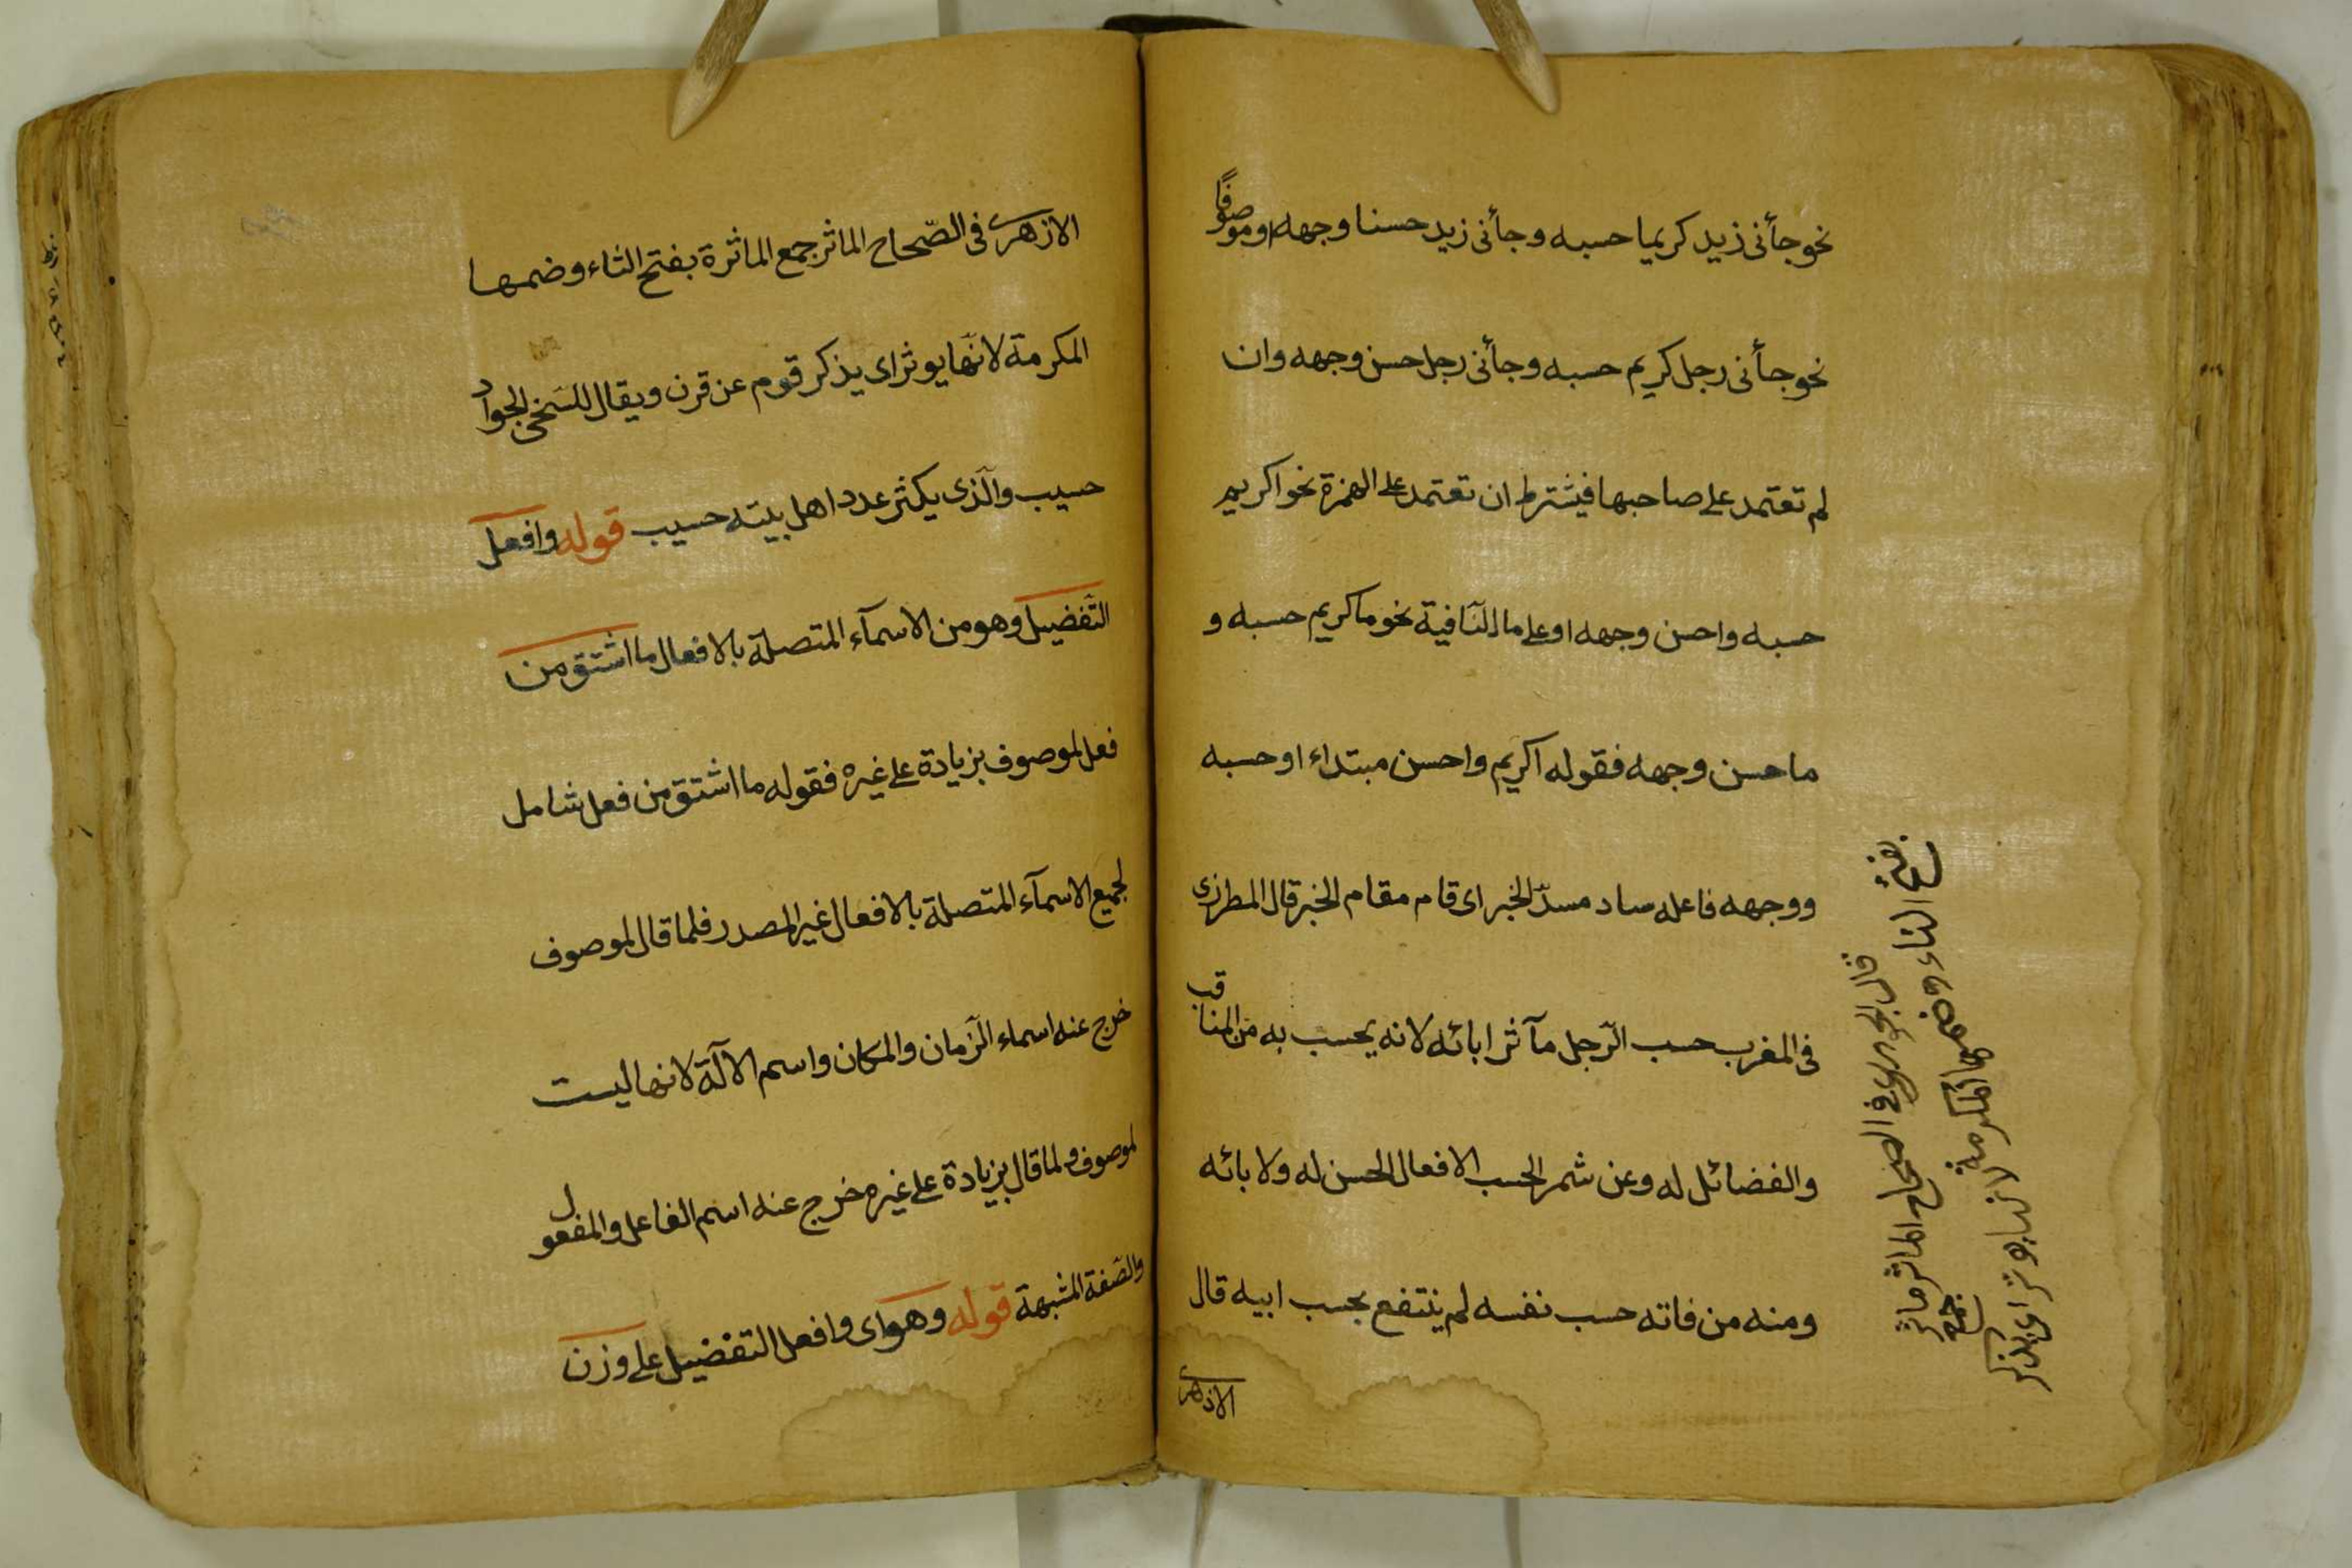 نحو جأنى زيد كريما حسبه وجأنى زيد حسنا وجهه او موصوفًا
نحو جأنى رجل كريم حسبه وجأنى رجل حسن وجهه وان
لم تعتمد على صاحبها فيشترط ان تعتمد على الهمزة نحو اكريم
حسبه واحسن وجهه او على ما النّافية نحو ما كريم حسبه و
ما حسن وجهه فقوله اكريم واحسن مبتداء او حسبه
ووجهه فاعله ساد مسدّ الخبر اى قام مقام الخبر قال المطرزى
فى المغرب حسب الرّجل مآثر ابائه لانه يحسب به من المناقب
والفضائل له وعن شمر الحسب الافعال الحسن له ولابائه
ومنه من فاته حسب نفسه لم ينتفع بحسب ابيه قال
الازهرى
قال الجوهرى فى الصحاح الماثر جمع ماثر
بفتح الثاء وضمها المكرمة لانها يوثر اى يذكر
الازهرى فى الصّحاح الماثر جمع الماثرة بفتح الثاء وضمها
المكرمة لانّها يوثر اى يذكر قوم عن قرن ويقال للسّخى الجواد
حسيب والّذى يكثر عدد اهل بيته حسيب قوله وافعل
التّفضيل وهو من الاسمآء المتصلة بالافعال ما اشتق من
فعل لموصوف بزيادة على غيره فقوله ما اشتق من فعل شامل
لجميع الاسمآء المتصلة بالافعال غير المصدر فلما قال لموصوف
خرج عنه اسماء الزّمان والمكان واسم الآلة لانها ليست
لموصوف ولما قال بزيادة على غيره خرج عنه اسم الفاعل والمفعول
والصّفة المشبهة قوله وهو اى وافعل التفضيل على وزن